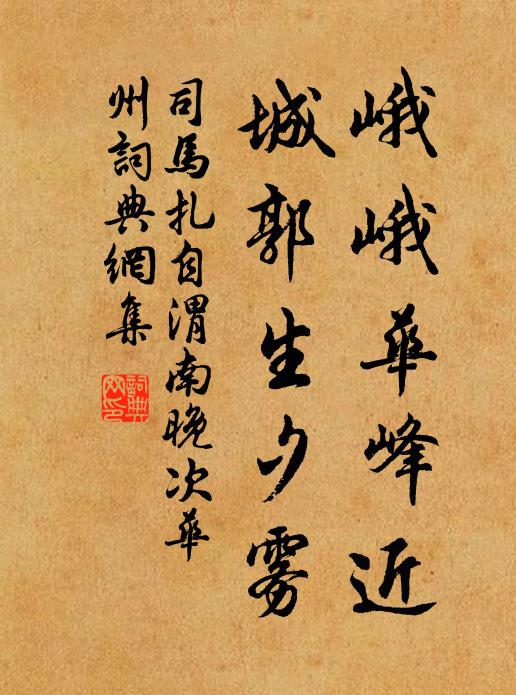 峨峨華峰近
城郭生夕雾
司馬扎自渭南晚次華
州詞典網集
詞典网印